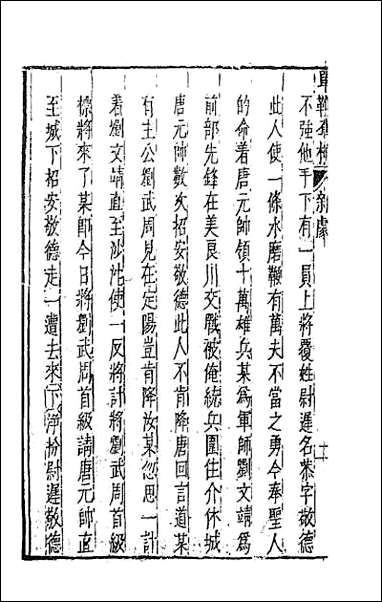 單鞭奪槊 新劇
不強他手下有一員上將覆姓尉遲名恭字敬德
此人使一條水磨鞭有萬夫不當之勇今奉聖人
的命着唐元帥領十萬雄兵某爲軍師劉文靖爲
前部先鋒在美良川交戰被俺統兵圍住介休城
唐元帥數次招安敬德此人不肯降唐回言道某
有主公劉武周見在定陽豈肯降汝某忽思一計
着劉文靖直至沙沱使一反將計將劉武周首級
標將來了某即今日將劉武周首級請唐元帥直
至城下招安敬德走一遭去來下淨扮尉遲敬德